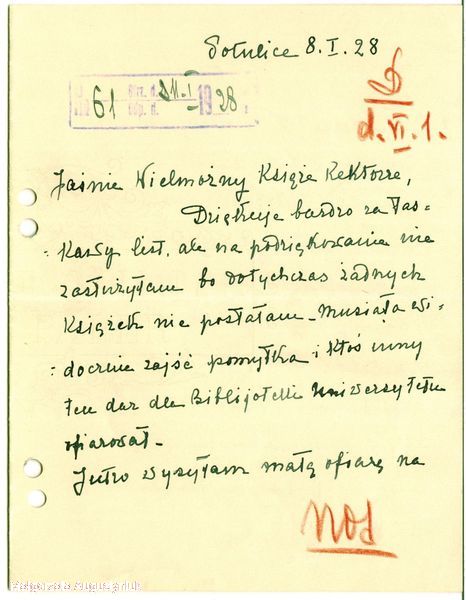 Potulice 8.I.28
61 11.I 1928
D
d. VI. 1.
Jaśnie Wielmożny Księże Rektorze,
Dziękuję bardzo za łas-
kawy list, ale na podziękowanie nie
zasłużyłam bo dotychczas żadnych
Książek nie posłałam. Musiała wi-
docznie zajść pomyłka i Ktoś inny
ten dar dla Biblijoteki Uniwersytetu
ofiarował.
Jutro wysyłam małą ofiarę na